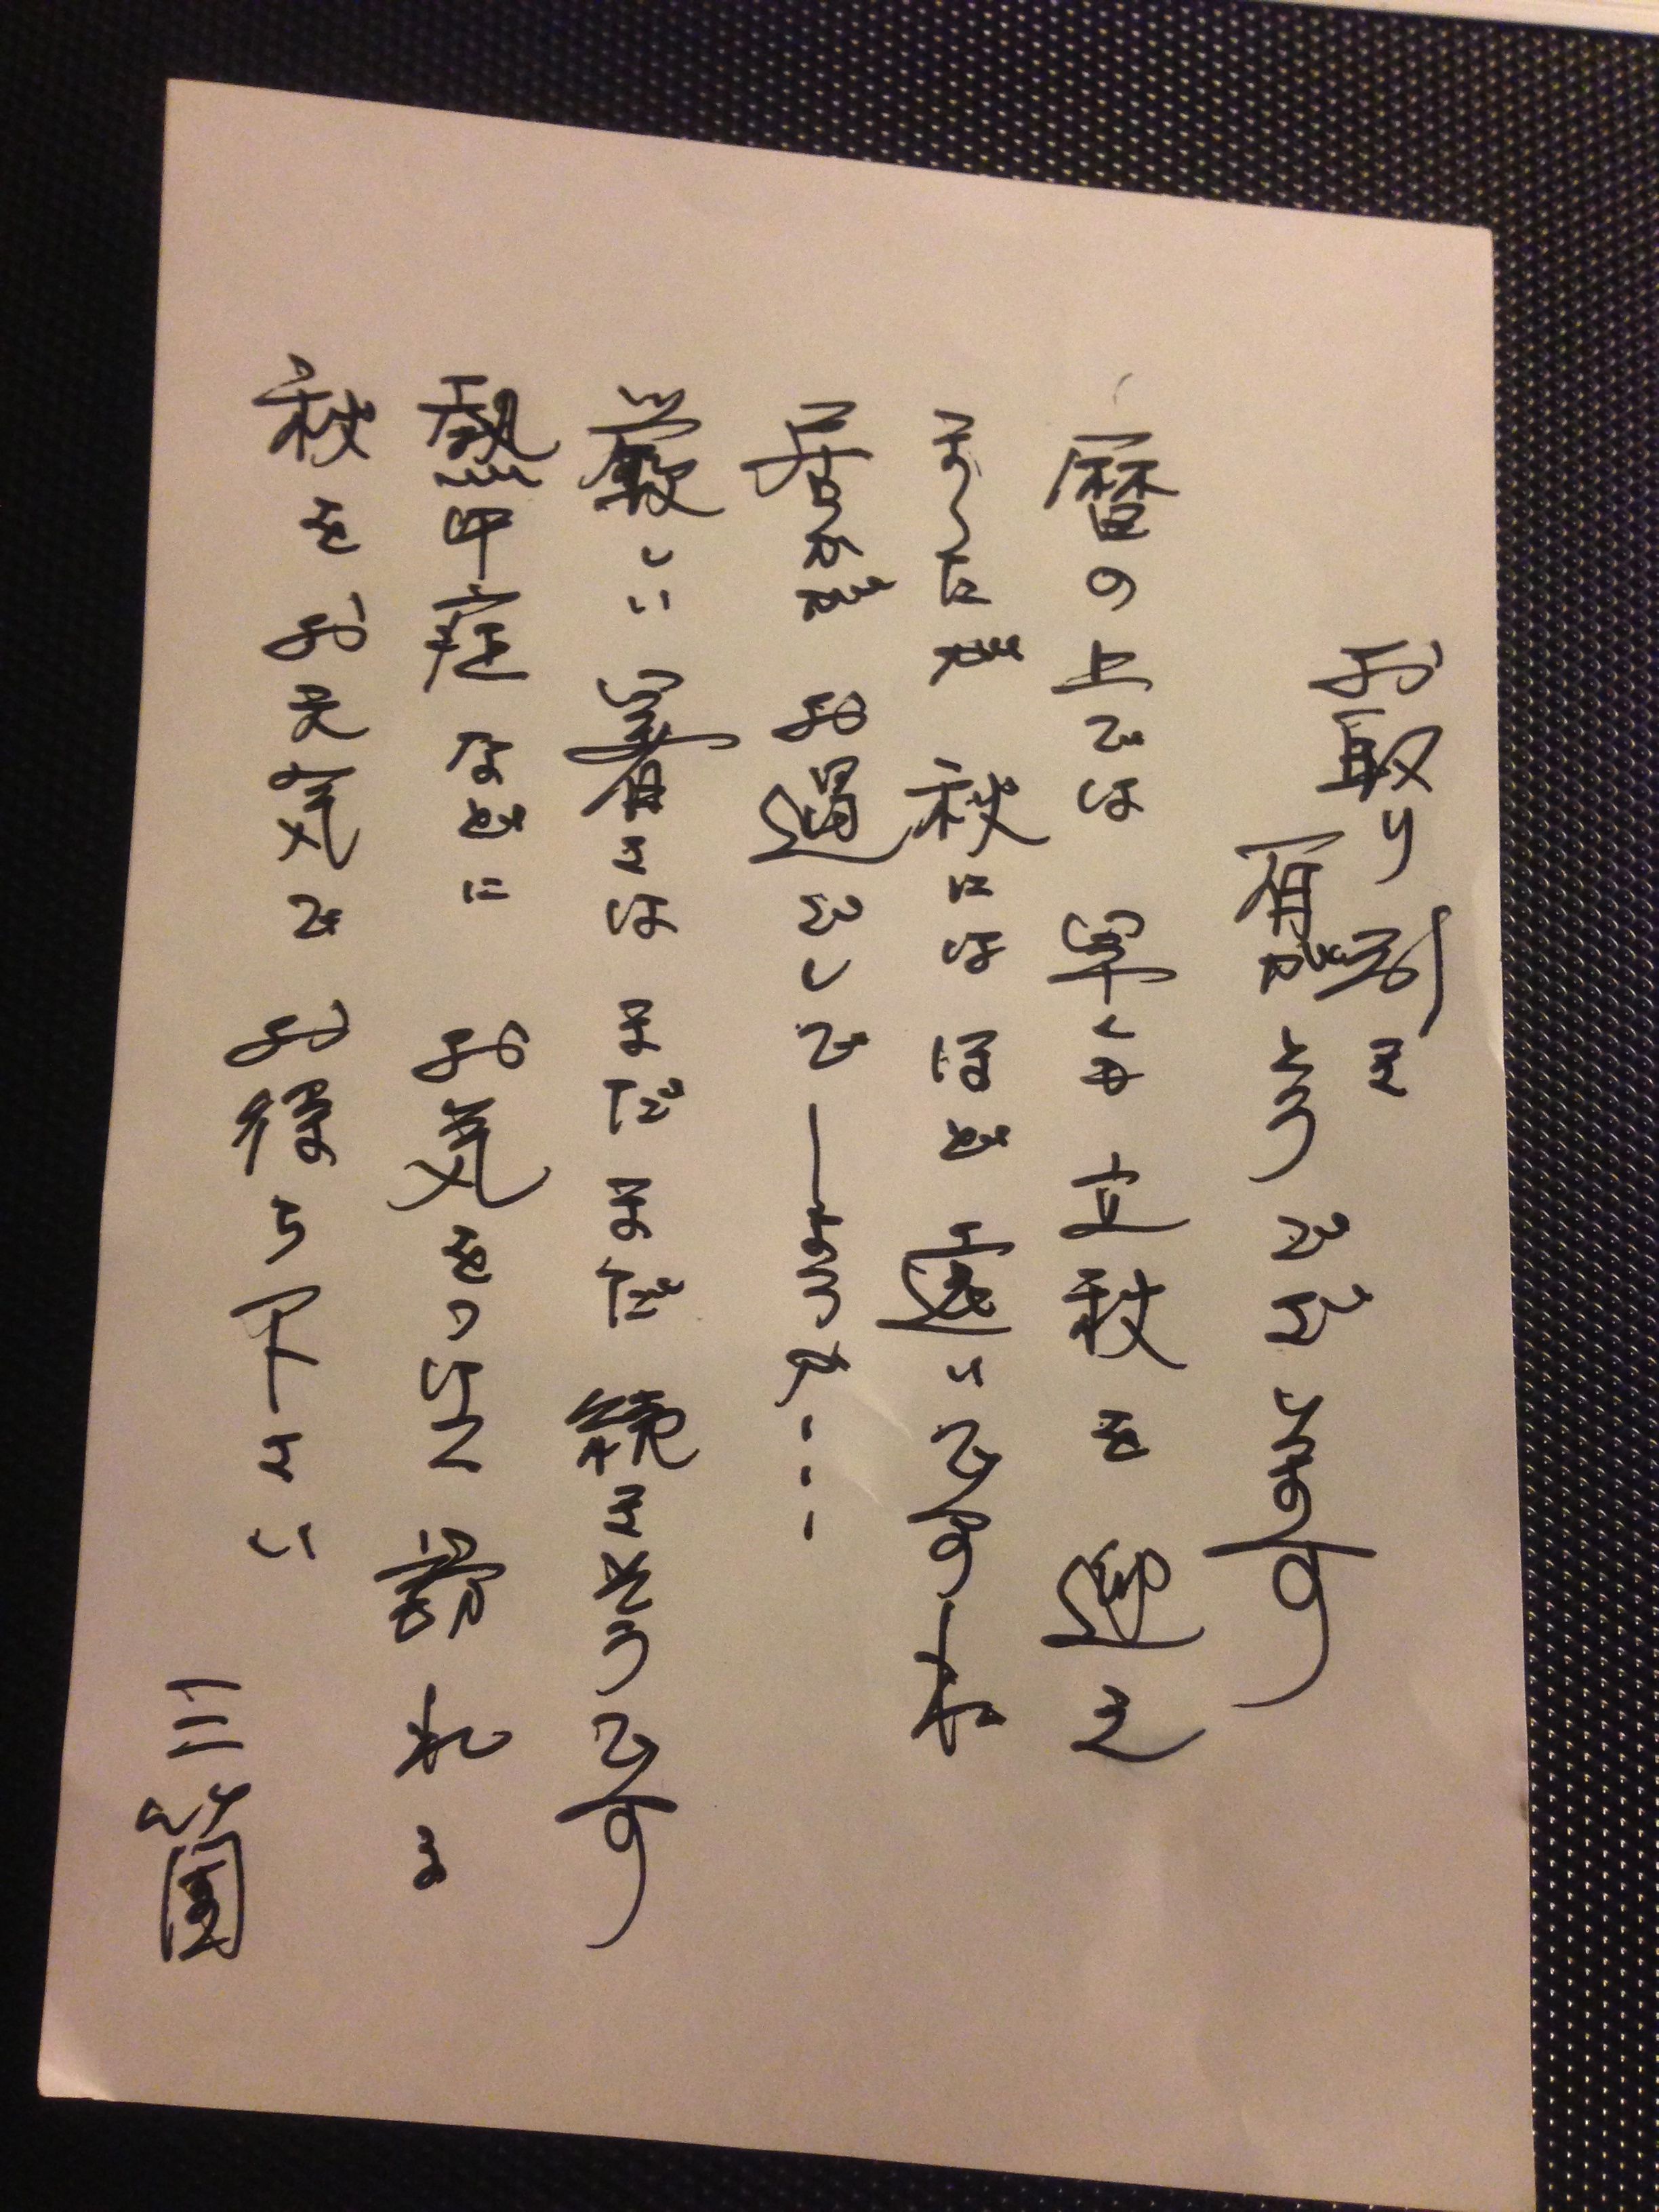 お取り引き
有がとうございます
暦の上では 早くも 立秋を 迎え
ましたが 秋にはほど 遠いですね
居かが お過ごしで しょうか・・・
厳しい 暑さは まだまだ 続きそうです
熱中症 などに お気をつけて 訪れる
秋を お元気で お待ち下さい